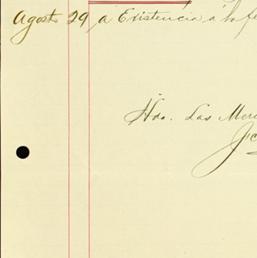 Agosto 29 a Existencia á la fe
Hda. Las Merc